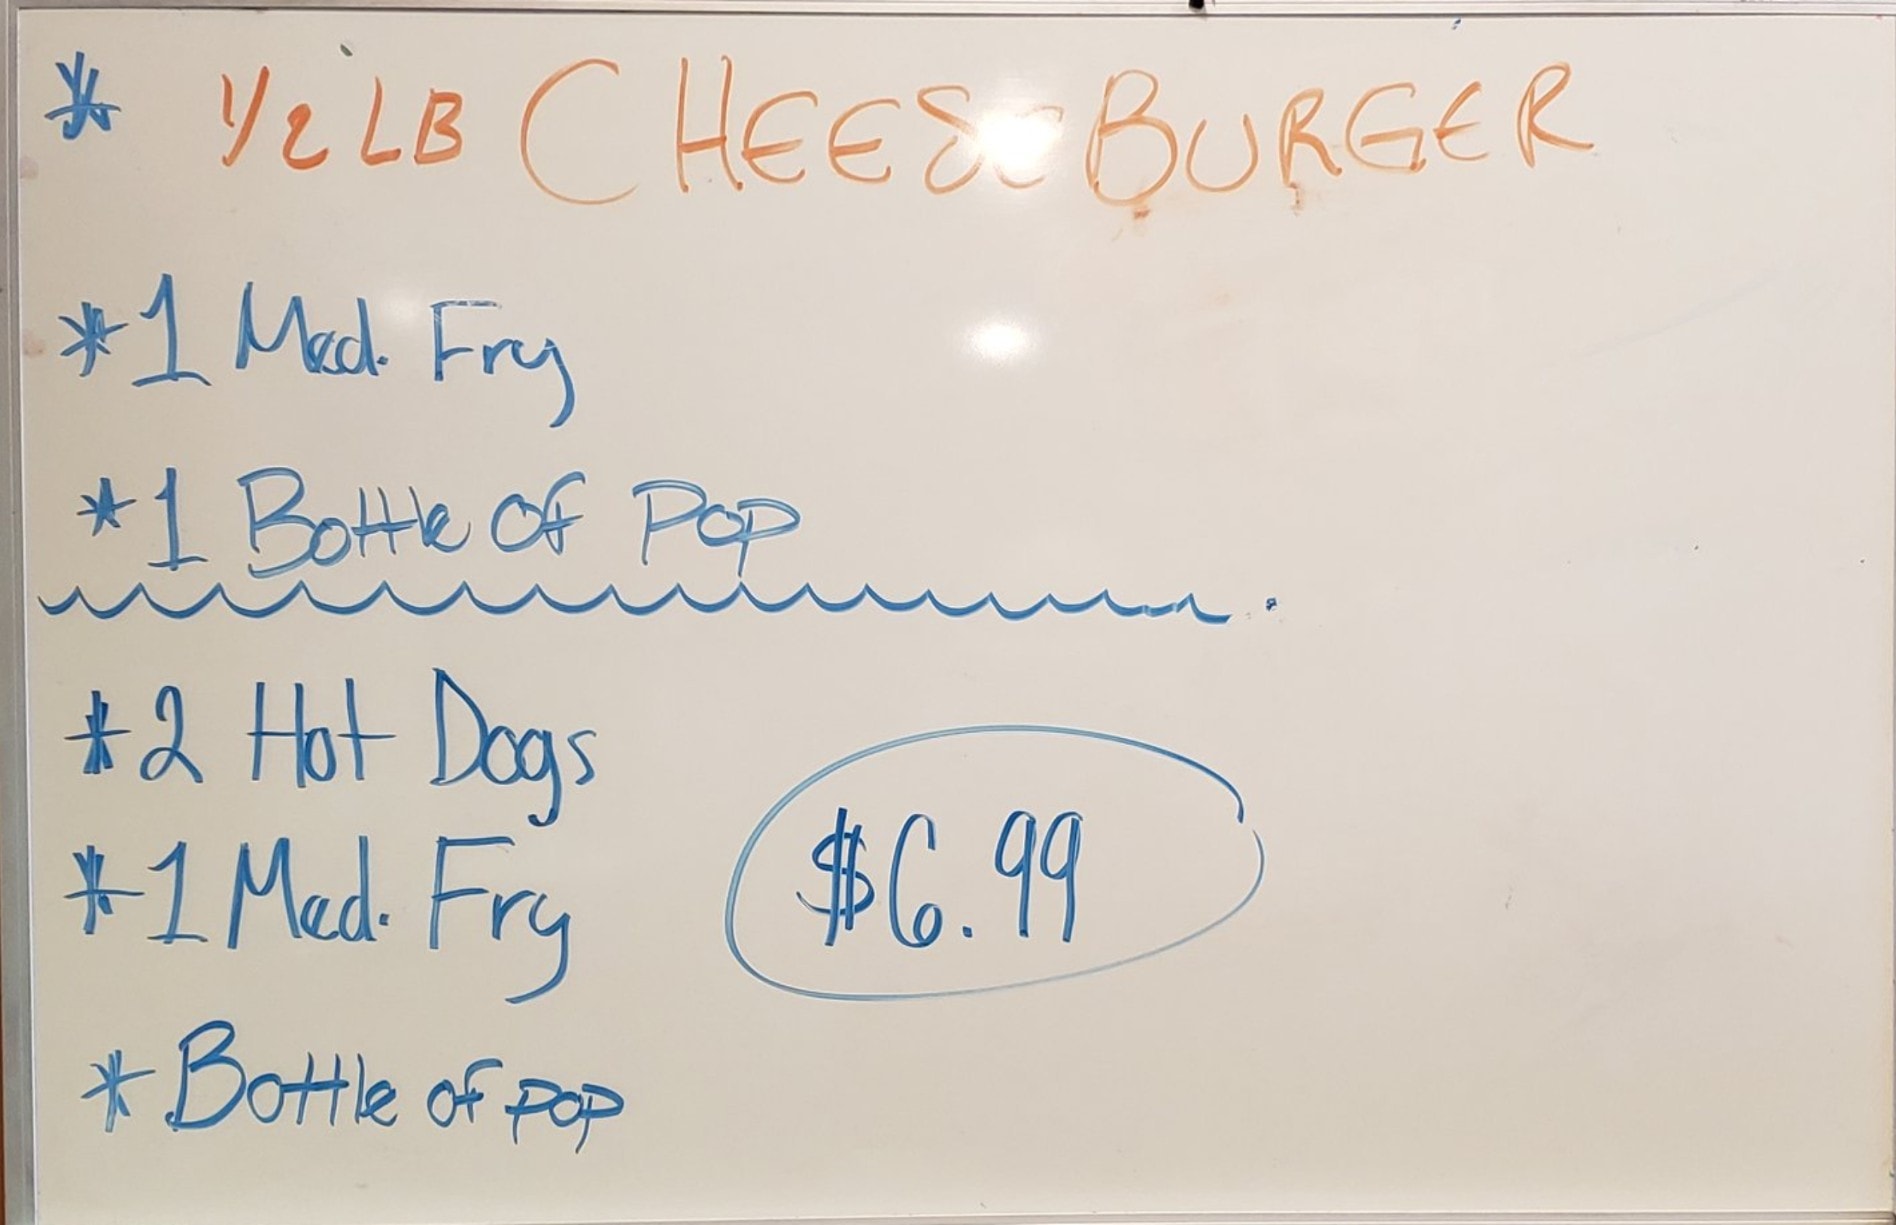 * 1/2 LB CHEESEBURGER
*1 Med. Fry
*1 Bottle of Pop
*2 Hot Dogs
*1 Med. Fry
$6.99
*Bottle of pop